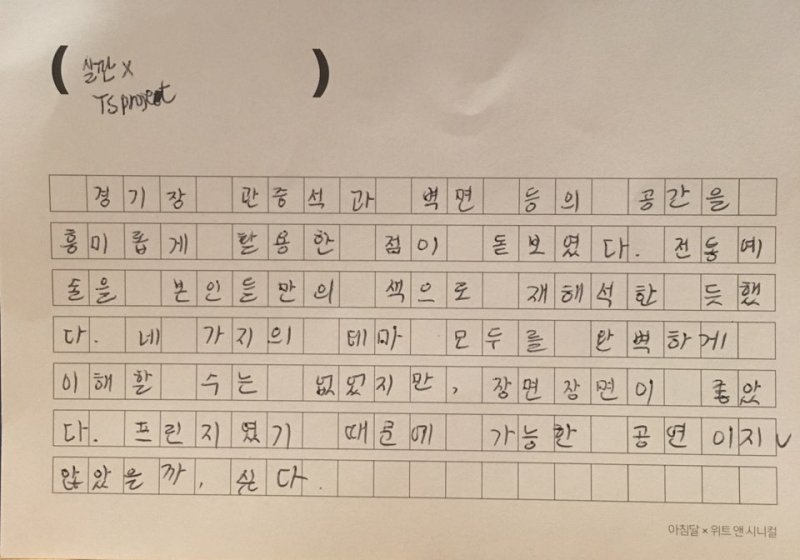 ( 살판 x
TS project )
경기장 관중석과 벽면 등의 공간을
흥미롭게 활용한 점이 돋보였다. 전통예
술을 본인들만의 색으로 재해석한 듯했
다. 네 가지의 테마 모두를 완벽하게
이해할 수는 없었지만, 장면장면이 좋았
다. 프린지였기 때문에 가능한 공연이지
않았을까, 싶다.
아침달 × 위트 앤 시니컬